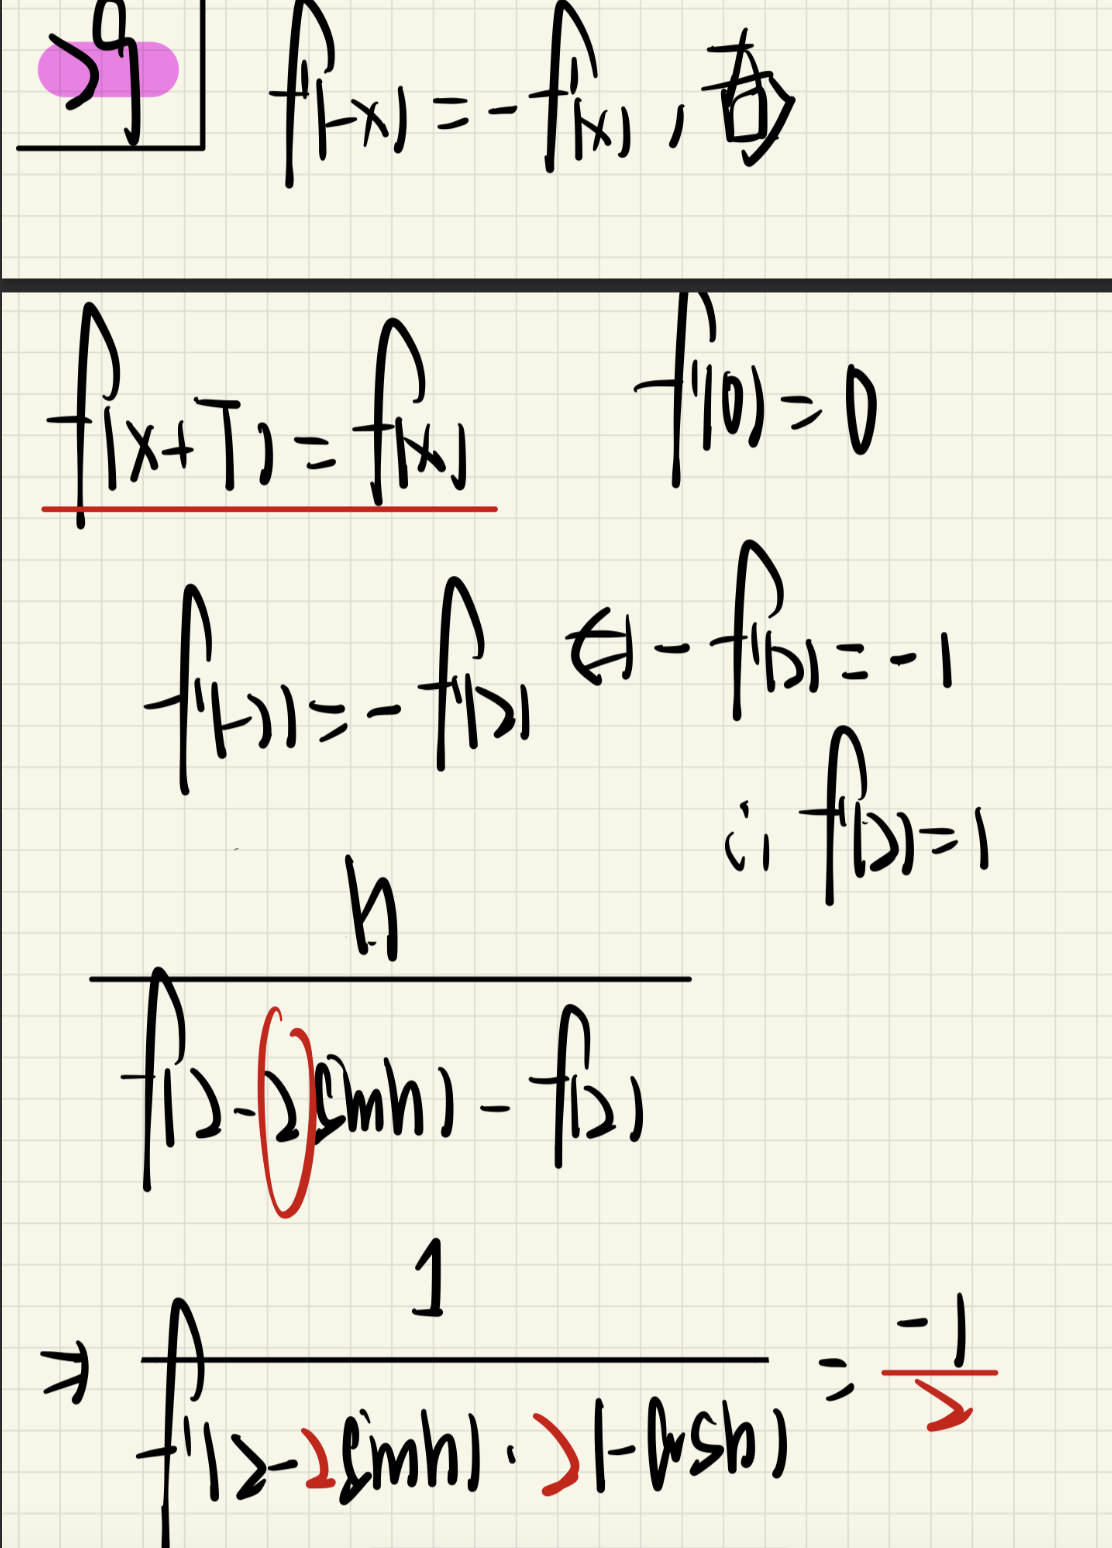 29
f(-x) = -f(x), 奇
f(x+T) = f(x)
f'(0) = 0
f'(-2) = -f'(2)
(-) - f'(2) = -1
∴ f'(2) = 1
h
f(2-2sinh) - f(2)
1
⇒ f'(2-2sinh)·2(-cosh) = -1/2